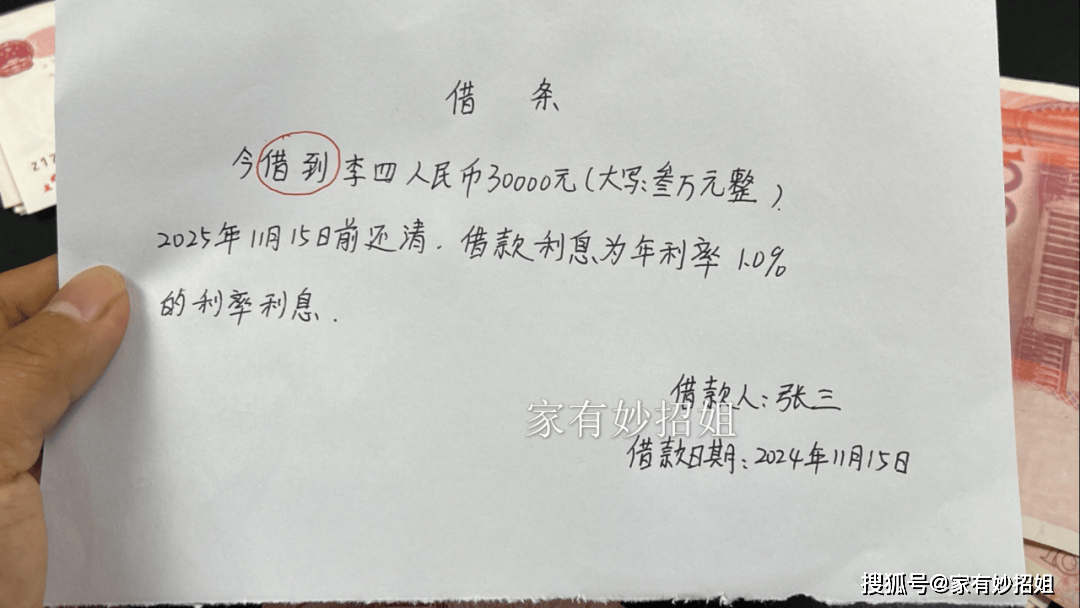 借 条
今借到李四人民币30000元(大写:叁万元整)
2025年11月15日前还清.借款利息为年利率1.0%
的利率利息.
借款人:张三
家有妙招姐
借款日期:2024年11月15日
搜狐号@家有妙招姐